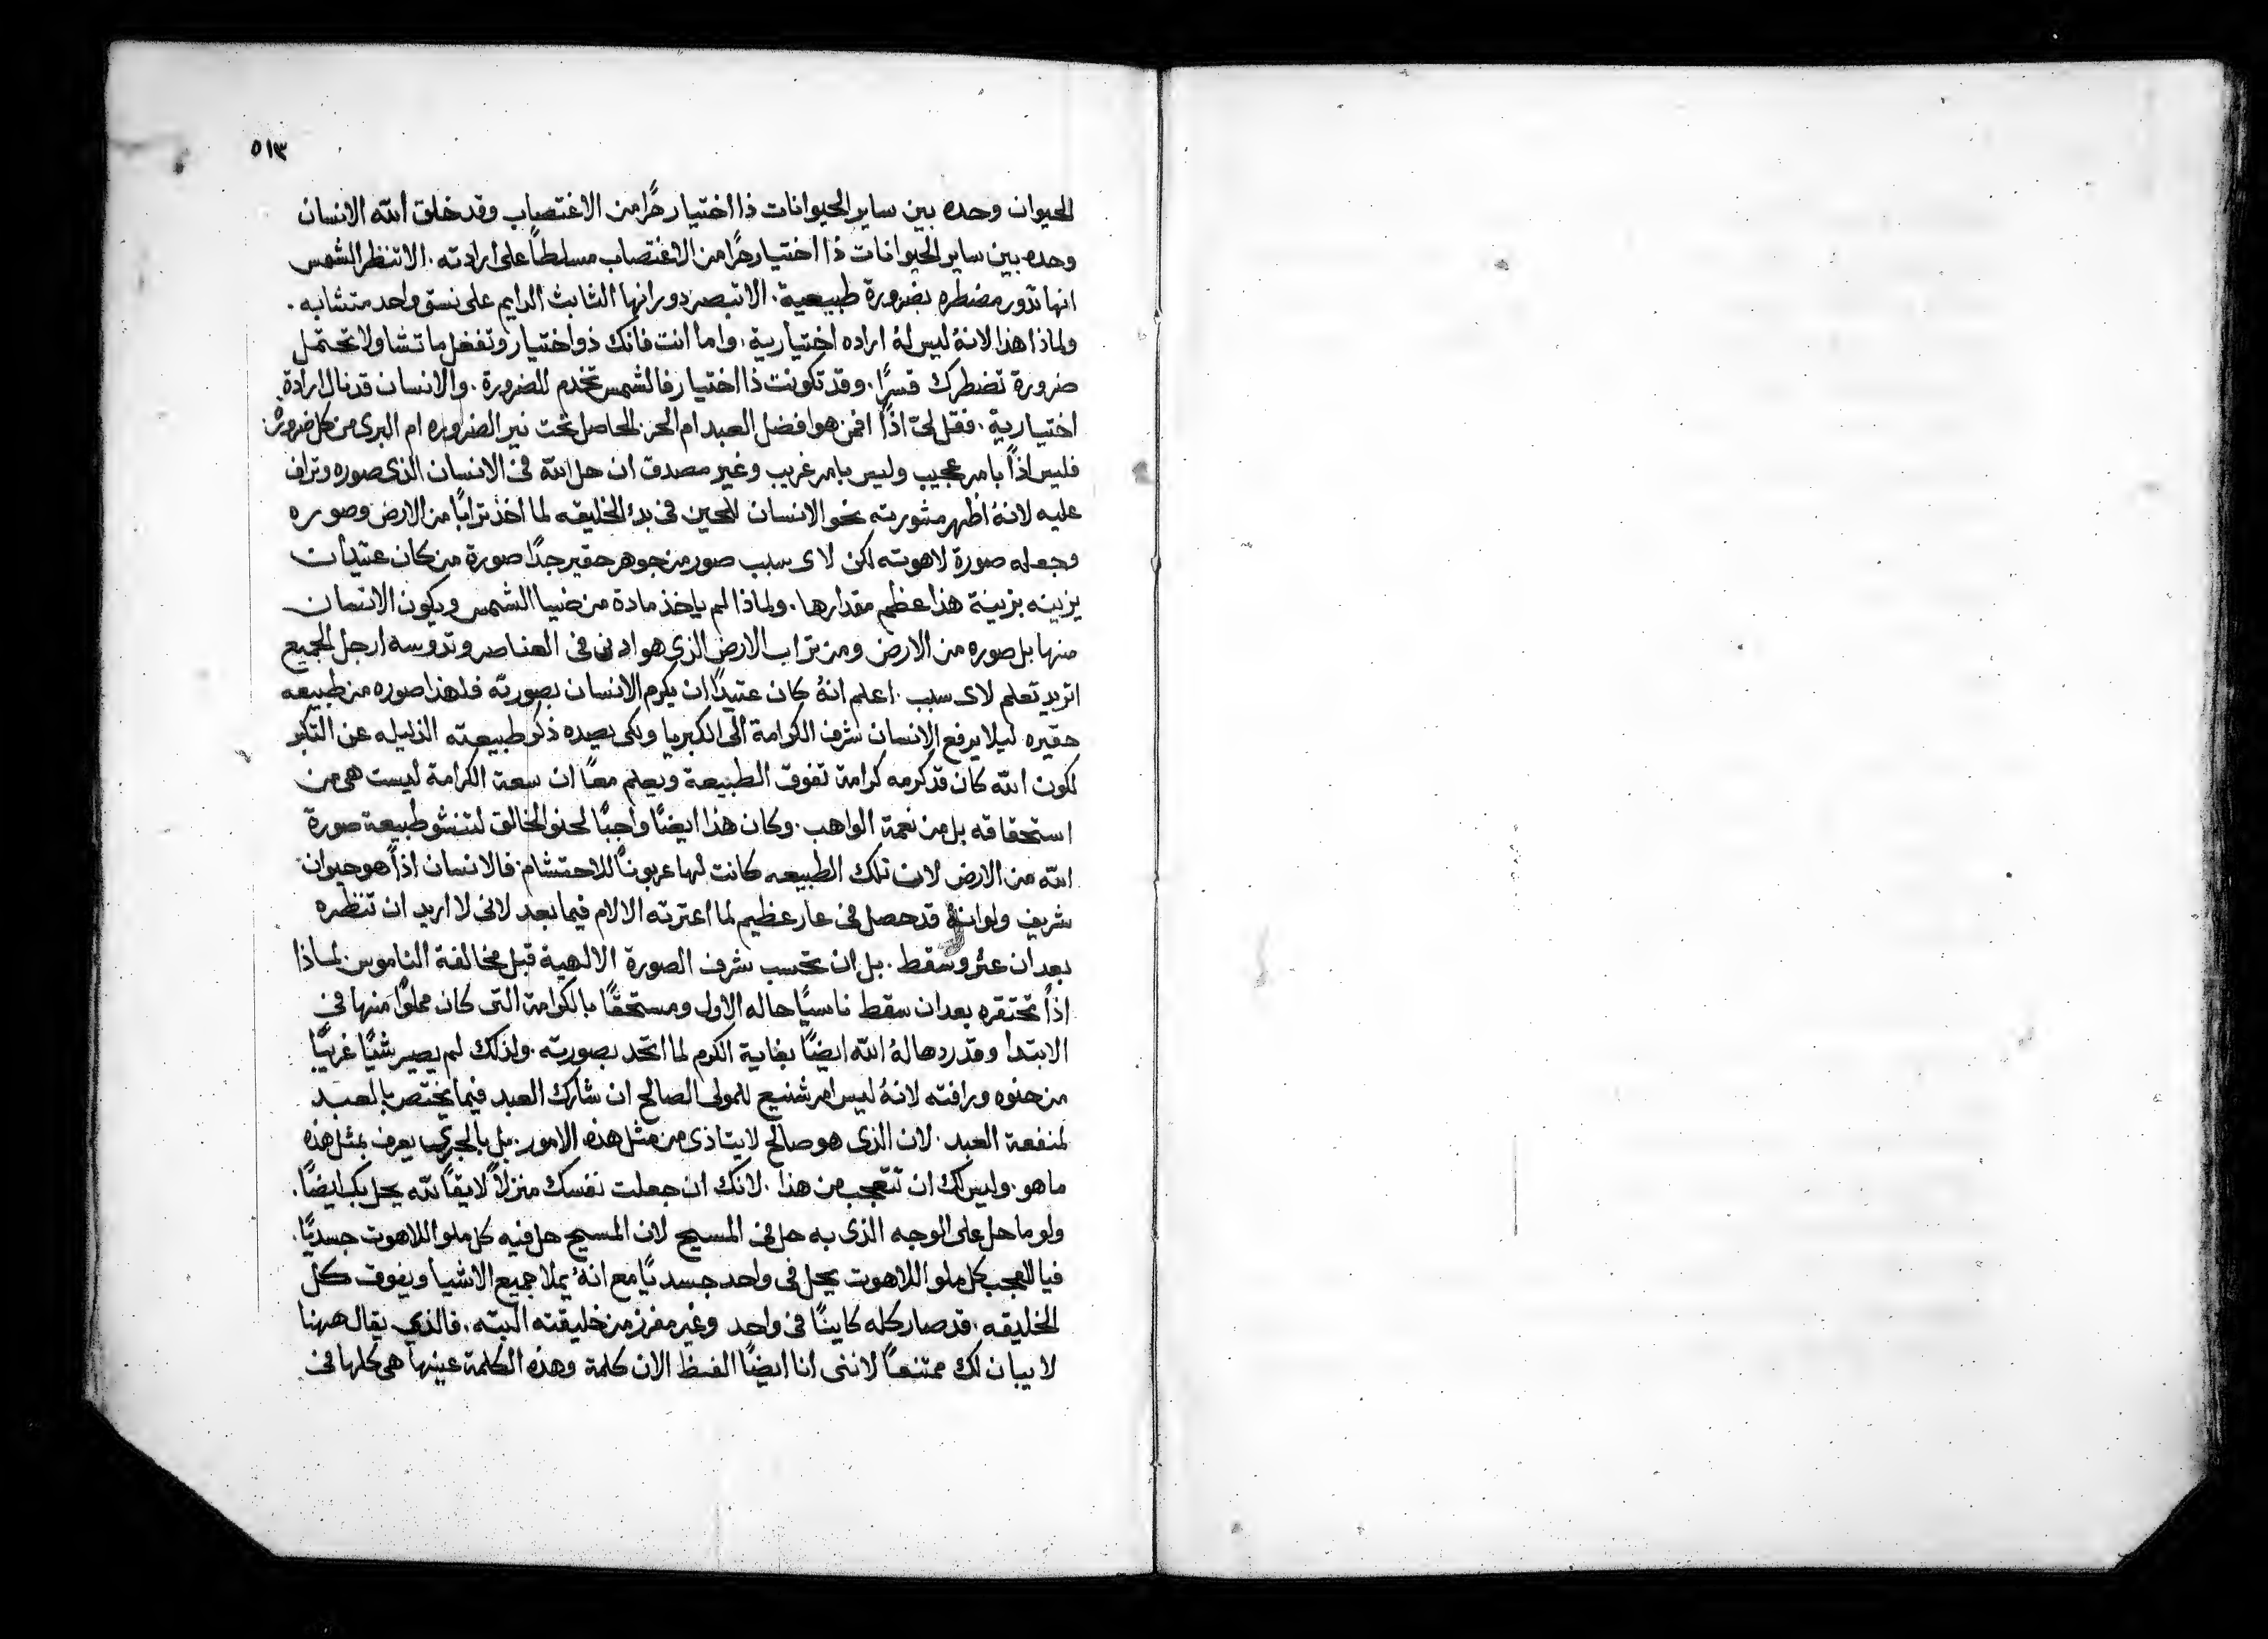 ٥١٣
الحيوان وحده بين ساير الحيوانات ذا اختيار حرًا من الاغتصاب وقد خلق الله الانسان
وحده بين ساير الحيوانات ذا اختيار حرًا من الاغتصاب مسلطاً على ارادته. الا تنظر الشمس
انها تدور مضطره بضرورة طبيعية. الا تبصر دورانها الثابت الدايم على نسق واحد متشابه.
ولماذا هذا لانهُ ليس لهُ اراده اختيارية. واما انت فانك ذو اختيار وتفعل ما تشا ولا تحتمل
ضرورة تضطرك قسرًا. وقد تكونت ذا اختيار فالشمس تخدم للضرورة. والانسان قد نال ارادة
اختيارية. فقل لي اذاً افمن هو افضل العبد ام الحر. الحاصل تحت نير الضروره ام البرى من كل ضرورة.
فليس اذاً بامر عجيب وليس بامر غريب وغير مصدق ان حل الله فى الانسان الذى صوره وتراف
عليه لانهُ اظهر مشورته نحو الانسان للحين فى بدء الخليقه لما اخذ ترابًا من الارض وصوره
وجعله صورة لاهوته لكن لاى سبب صور من جوهر حقير جدًا صورة من كان عتيدًا ان
يزينه بزينة هذا عظم مقدارها. ولماذا لم ياخذ مادة من ضيا الشمس ويكون الانسان
منها بل صوره من الارض ومن تراب الارض الذي هو ادنى فى العناصر وتدوسه ارجل الجميع
اتريد تعلم لاى سبب. اعلم انهُ كان عتيدًا ان يكرم الانسان بصورته فلهذا صوره من طبيعه
حقيره ليلا يرفع الانسان شرف الكرامة الى الكبريا ولكى يصده ذكر طبيعته الذليله عن التكبر
لكون الله كان قد كرمه كرامة تفوق الطبيعة ويعلم معًا ان سعة الكرامة ليست هى من
استحقاقه بل من نعمة الواهب. وكان هذا ايضًا واجبًا لحنو الخالق لتنشو طبيعة صورة
الله من الارض لان تلك الطبيعه كانت لها عربونًا للاحتشام فالانسان اذاً هو حيوان
شريف ولو انهُ قد حصل فى عار عظيم لما اعترته الالام فيما بعد لانى لا اريد ان تنظره
بعد ان عثر وسقط. بل ان تحسب شرف الصورة الالهية قبل مخالفة الناموس. لماذا
اذاً تحتقره بعد ان سقط ناسيًا حاله الاول ومستحقًا بالكرامة التى كان مملوًا منها فى
الابتدا وقد ردها لهُ الله ايضًا بغاية الكرم لما اتحد بصورته. ولذلك لم يصير شيًا غريبًا
من حنوه ورافته لانهُ ليس امر شنيع للمولى الصالح ان شارك العبد فيما يختص بالعبد
لمنفعة العبد. لان الذى هو صالح لا يتاذى من مثل هذه الامور. بل بالحري يعرف بمثل هذه
ما هو. وليس لك ان تتعجب من هذا. لانك ان جعلت نفسك منزلاً لايقًا لله يحل بك ايضًا.
ولو ما حل على الوجه الذى به حل فى المسيح لان المسيح حل فيه كل ملو اللاهوت جسديًا.
فيا للعجب كل ملو اللاهوت يحل فى واحد جسديًا مع انهُ يملا جميع الاشيا ويفوق كل
الخليقه. قد صار كله كاينًا فى واحد وغير مفرز من خليقته البته. فالذي يقال ههنا
لا يبان لك ممتنعًا لاننى انا ايضًا الفظ الان كلمة وهذه الكلمة عينها هى كلها فى